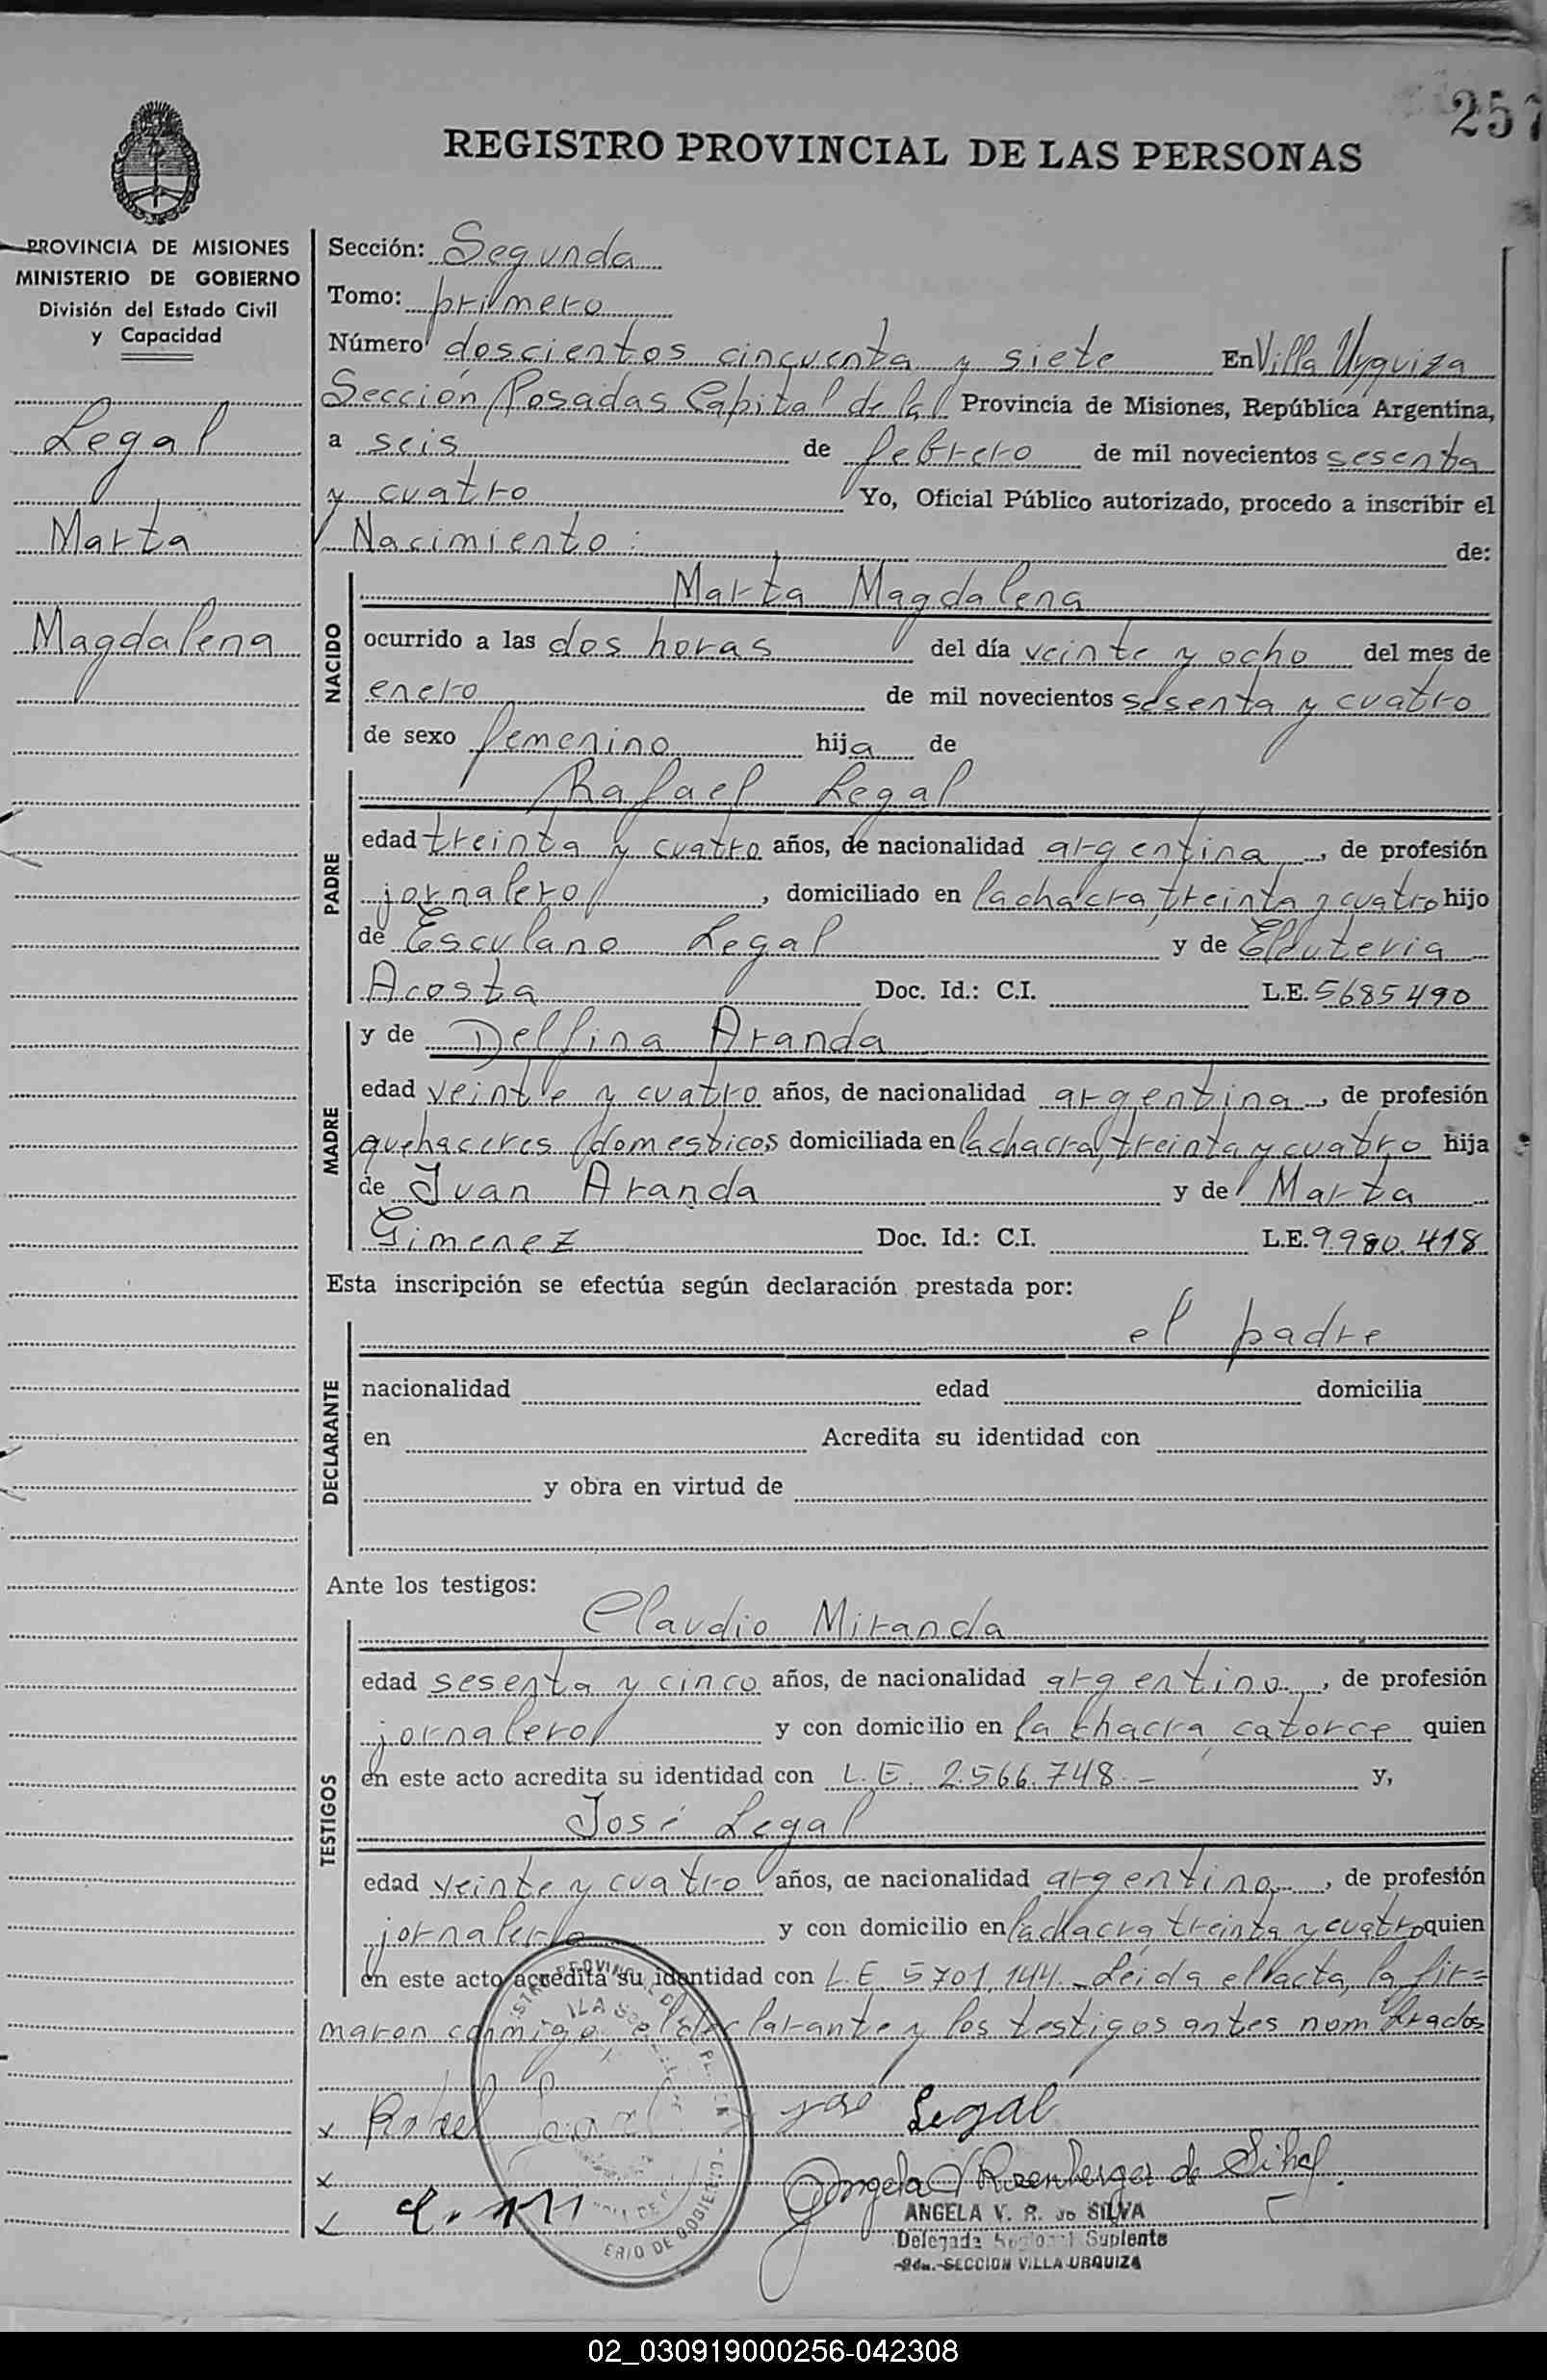 257
REGISTRO PROVINCIAL DE LAS PERSONAS
PROVINCIA DE MISIONES
MINISTERIO DE GOBIERNO
División del Estado Civil
y Capacidad
Legal
Marta
Magdalena
Sección: Segunda
Tomo: primero
Número doscientos cincuenta y siete En Villa Urquiza
Sección Posadas Capital de la Provincia de Misiones, República Argentina,
a seis de febrero de mil novecientos sesenta
y cuatro Yo, Oficial Público autorizado, procedo a inscribir el
Nacimiento: de:
NACIDO
Marta Magdalena
ocurrido a las dos horas del día veinte y ocho del mes de
enero de mil novecientos sesenta y cuatro
de sexo femenino hija de
PADRE
Rafael Legal
edad treinta y cuatro años, de nacionalidad argentina, de profesión
jornalero, domiciliado en la chacra, treinta y cuatro hijo
de Esculano Legal y de Eleuteria
Acosta Doc. Id.: C.I. L.E. 5685490
MADRE
y de Delfina Aranda
edad veinte y cuatro años, de nacionalidad argentina, de profesión
quehaceres domesticos domiciliada en la chacra, treinta y cuatro hija
de Juan Aranda y de Marta
Gimenez Doc. Id.: C.I. L.E. 9.980.418
Esta inscripción se efectúa según declaración prestada por:
DECLARANTE
el padre
nacionalidad edad domicilia
en Acredita su identidad con
y obra en virtud de
Ante los testigos:
TESTIGOS
Claudio Miranda
edad sesenta y cinco años, de nacionalidad argentino, de profesión
jornalero y con domicilio en la chacra, catorce quien
en este acto acredita su identidad con L.E. 2.566.748.- y,
José Legal
edad veinte y cuatro años, de nacionalidad argentino, de profesión
jornalero y con domicilio en la chacra, treinta y cuatro quien
en este acto acredita su identidad con L.E. 5701.144.- Leída el acta, la fir=
maron conmigo, el declarante y los testigos antes nombrados
x José Legal
x Angela Rosenberger de Silva
x
ANGELA V. R. de SILVA
Delegada Suplente
SECCION VILLA URQUIZA
02_030919000256-042308